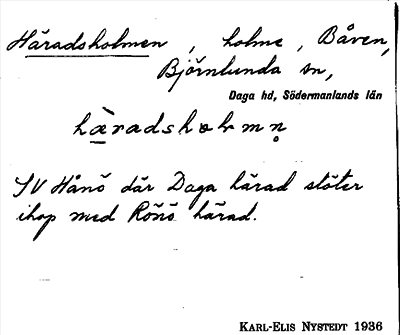 Häradsholmen, holme, Båven,
Björnlunda sn,
Daga hd, Södermanlands län
hæ̀radshɒlmn̥
SV Hånö där Daga härad stöter
ihop med Rönö härad.
KARL-ELIS NYSTEDT 1936